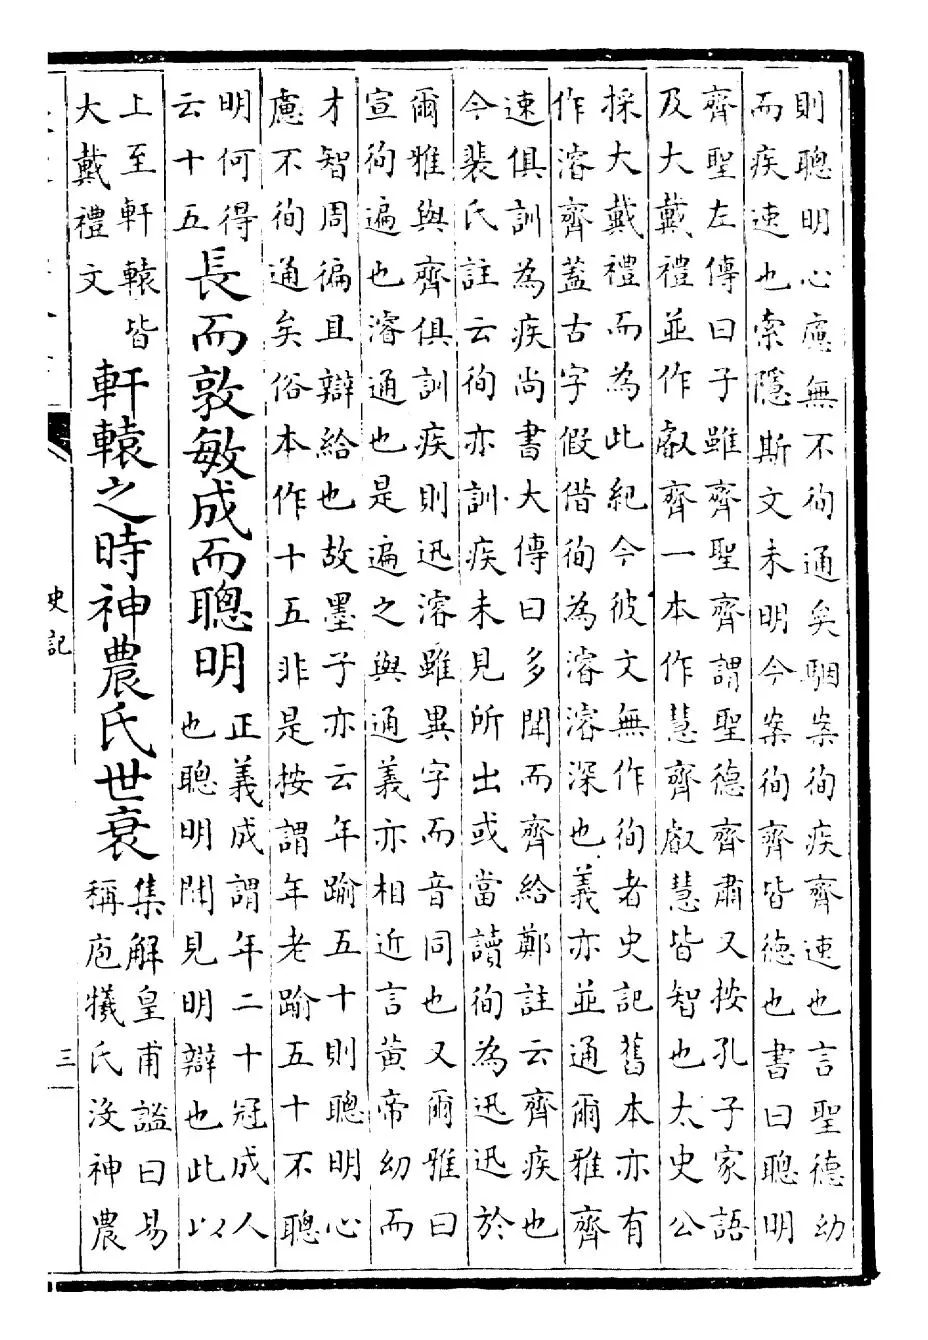 則聰明心慮無不徇通矣駰案徇疾齊速也言聖德幼
而疾速也索隱斯文未明今案徇齊皆德也書曰聰明
齊聖左傳曰子雖齊聖齊謂聖德齊肅又按孔子家語
及大戴禮並作叡齊一本作慧齊叡慧皆智也太史公
採大戴禮而為此紀今彼文無作徇者史記舊本亦有
作濬齊蓋古字假借徇為濬濬深也義亦並通爾雅齊
速俱訓為疾尚書大傳曰多聞而齊給鄭註云齊疾也
今裴氏註云徇亦訓疾未見所出或當讀徇為迅迅於
爾雅與齊俱訓疾則迅濬雖異字而音同也又爾雅曰
宣徇遍也濬通也是遍之與通義亦相近言黃帝幼而
才智周徧且辯給也故墨子亦云年踰五十則聰明心
慮不徇通矣俗本作十五非是按謂年老踰五十不聰
明何得
云十五
長而敦敏成而聰明
正義成謂年二十冠成人
也聰明聞見明辯也此以
上至軒轅皆
大戴禮文
軒轅之時神農氏世衰
集解皇甫謐曰易
稱庖犧氏沒神農
史記
三